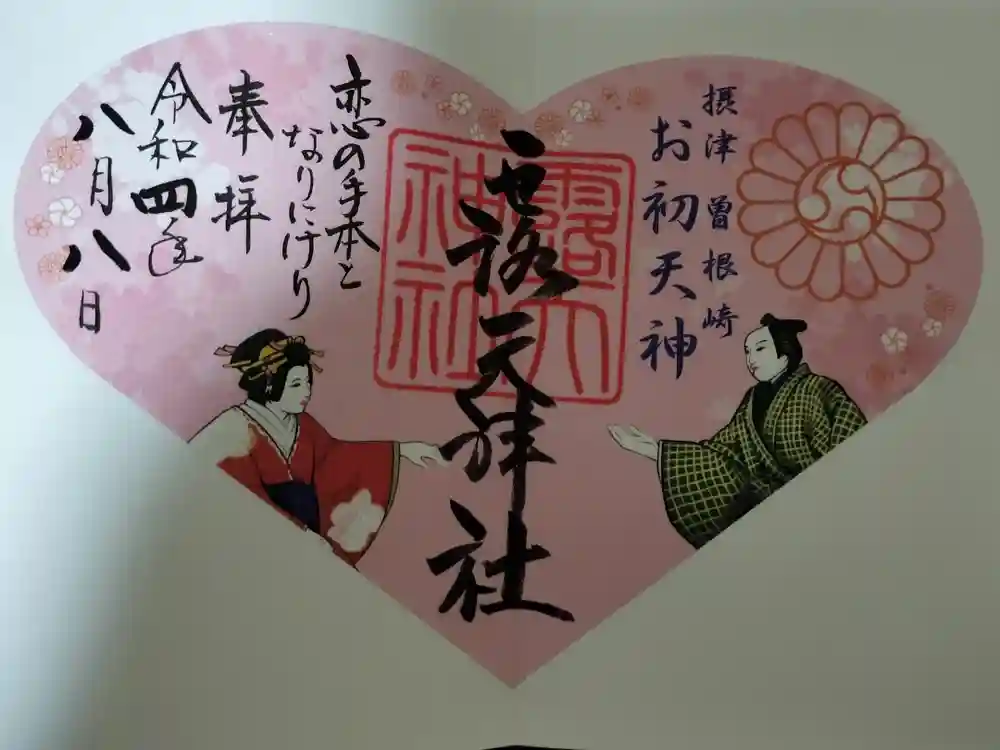 摂津 曽根崎
お初天神
露天神社
露天
神社
恋の手本と
なりにけり
奉拝
令和四年
八月八日